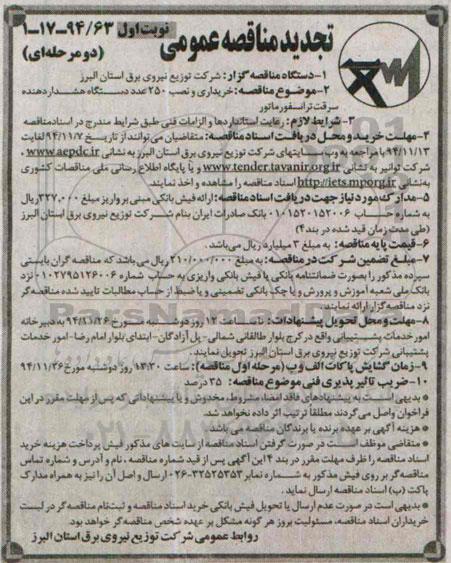 نوبت اول
۱-۱۷-۹۴/۶۳
تجدید مناقصه عمومی
(دو مرحله‌ای)
۱-دستگاه مناقصه گزار: شرکت توزیع نیروی برق استان البرز
۲-موضوع مناقصه: خریداری و نصب ۲۵۰ عدد دستگاه هشداردهنده
سرقت ترانسفورماتور
۳-شرایط لازم: رعایت استانداردها و الزامات فنی طبق شرایط مندرج در اسناد مناقصه
۴-مهلت خرید و محل دریافت اسناد مناقصه: متقاضیان می‌توانند از تاریخ ۹۴/۱۱/۷ لغایت
۹۴/۱۱/۱۳ با مراجعه به وب سایتهای شرکت توزیع نیروی برق استان البرز به نشانی www.aepdc.ir و
شرکت توانیر به نشانی www.tender.tavanir.org.ir و یا پایگاه اطلاع رسانی ملی مناقصات کشوری
به نشانی http://iets.mporg.ir اسناد مناقصه را مشاهده و اخذ نمایند.
۵-مدارک مورد نیاز جهت دریافت اسناد مناقصه: ارائه فیش بانکی مبنی بر واریز مبلغ ۳۲۷,۰۰۰ ریال
به شماره حساب ۰۱۰۱۵۲۰۱۵۲۰۰۶ بانک صادرات ایران بنام شرکت توزیع نیروی برق استان البرز
(طی مدت زمان قید شده در بند۴)
۶-قیمت پایه مناقصه: به مبلغ ۳ میلیارد ریال می‌باشد.
۷-مبلغ تضمین شرکت در مناقصه: به مبلغ ۲۱۰/۰۰۰/۰۰۰ ریال می‌باشد که مناقصه گران بایستی
سپرده مذکور را بصورت ضمانتنامه بانکی یا فیش بانکی واریزی به حساب شماره ۰۱۰۲۷۹۵۱۲۶۰۰۶ نزد
بانک ملی شعبه آموزش و پرورش و یا چک بانکی تضمینی و یا ضبط از حساب مطالبات تایید شده مناقصه گر
نزد مناقصه گزار ارائه نمایند.
۸-مهلت و محل تحویل پیشنهادات: تا ساعت ۱۲ روز دوشنبه مورخ ۹۴/۱۱/۲۶ به دبیرخانه
امور خدمات پشتیبانی واقع در کرج بلوار طالقانی شمالی-پل آزادگان-ابتدای بلوار امام رضا-امور خدمات
پشتیبانی شرکت توزیع نیروی برق استان البرز تحویل نمایند.
۹-زمان گشایش پاکات الف و ب (مرحله اول مناقصه): ساعت ۱۳:۳۰ روز دوشنبه مورخ ۹۴/۱۱/۲۶
۱۰-ضریب تاثیر پذیری فنی موضوع مناقصه: ۳۵ درصد
* بدیهی است به پیشنهادهای فاقد امضاء، مشروط، مخدوش و یا پیشنهاداتی که پس از مهلت مقرر در این
فراخوان واصل می‌گردند مطلقا ترتیب اثر داده نخواهد شد.
* هزینه آگهی بر عهده برنده یا برندگان مناقصه می‌باشد
* متقاضی موظف است در صورت گرفتن اسناد مناقصه از سایت های مذکور فیش پرداخت هزینه خرید
اسناد مناقصه را ظرف مهلت مقرر در بند ۴ این آگهی پس از قید شماره مناقصه، نام و آدرس و شماره تماس
مناقصه گر بر روی فیش مذکور به شماره نمابر ۳۲۵۲۵۳۵۳-۰۲۶ ارسال و اصل آن را نیز به همراه مدارک
پاکت (ب) اسناد مناقصه ارسال نماید.
* بدیهی است در صورت عدم ارسال یا تحویل فیش بانکی خرید اسناد مناقصه و ثبت نام مناقصه گر در لیست
خریداران اسناد مناقصه، مسئولیت بروز هر گونه مشکل بر عهده شخص مناقصه گر خواهد بود.
روابط عمومی شرکت توزیع نیروی برق استان البرز